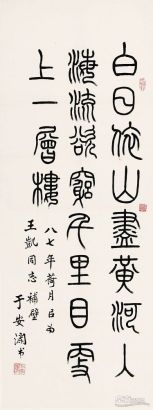 白日依山盡黃河入
海流欲窮千里目更
上一層樓
八七年荷月
王凱同志補壁
于安瀾书